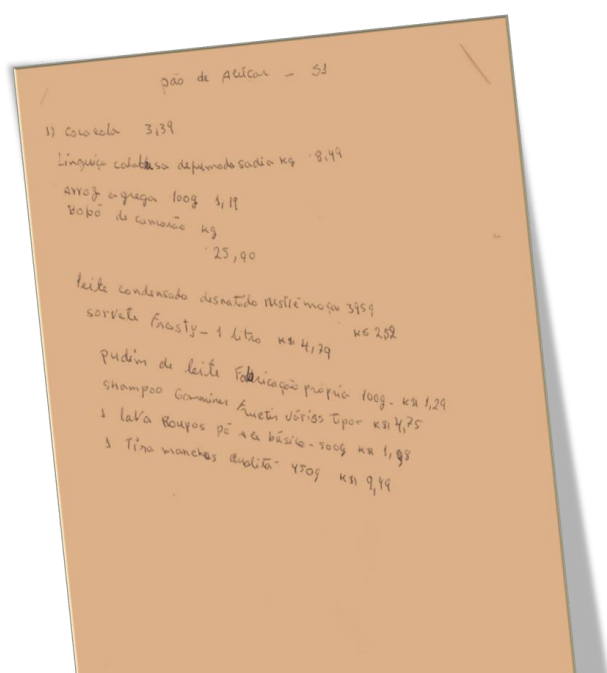 pão de Açúcar - S1
1) coca cola 3,39
Linguiça calabresa defumada sadia kg 8,49
arroz a grega 100g 1,19
Bobó de camarão kg
25,90
leite condensado desnatado Nestlé moça 395g
R$ 2,52
sorvete Frosty - 1 litro R$ 4,79
pudim de leite Fabricação própria 100g - R$ 1,29
shampoo Garnier Fructis vários tipos R$ 4,75
1 lava Roupas pó básico - 500g R$ 1,98
1 Tira manchas qualitá - 450g R$ 9,49